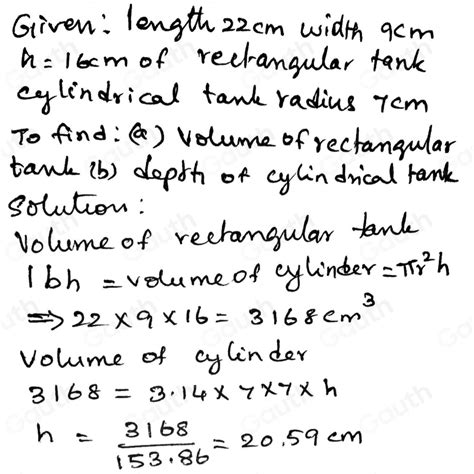 Given: length 22cm width 9cm
h = 16cm of rectangular tank
cylindrical tank radius 7cm
To find: (a) Volume of rectangular
tank (b) depth of cylindrical tank
Solution:
Volume of rectangular tank
lbh = volume of cylinder = πr²h
⇒ 22 × 9 × 16 = 3168 cm³
Volume of cylinder
3168 = 3.14 × 7 × 7 × h
h = 3168/153.86 = 20.59 cm